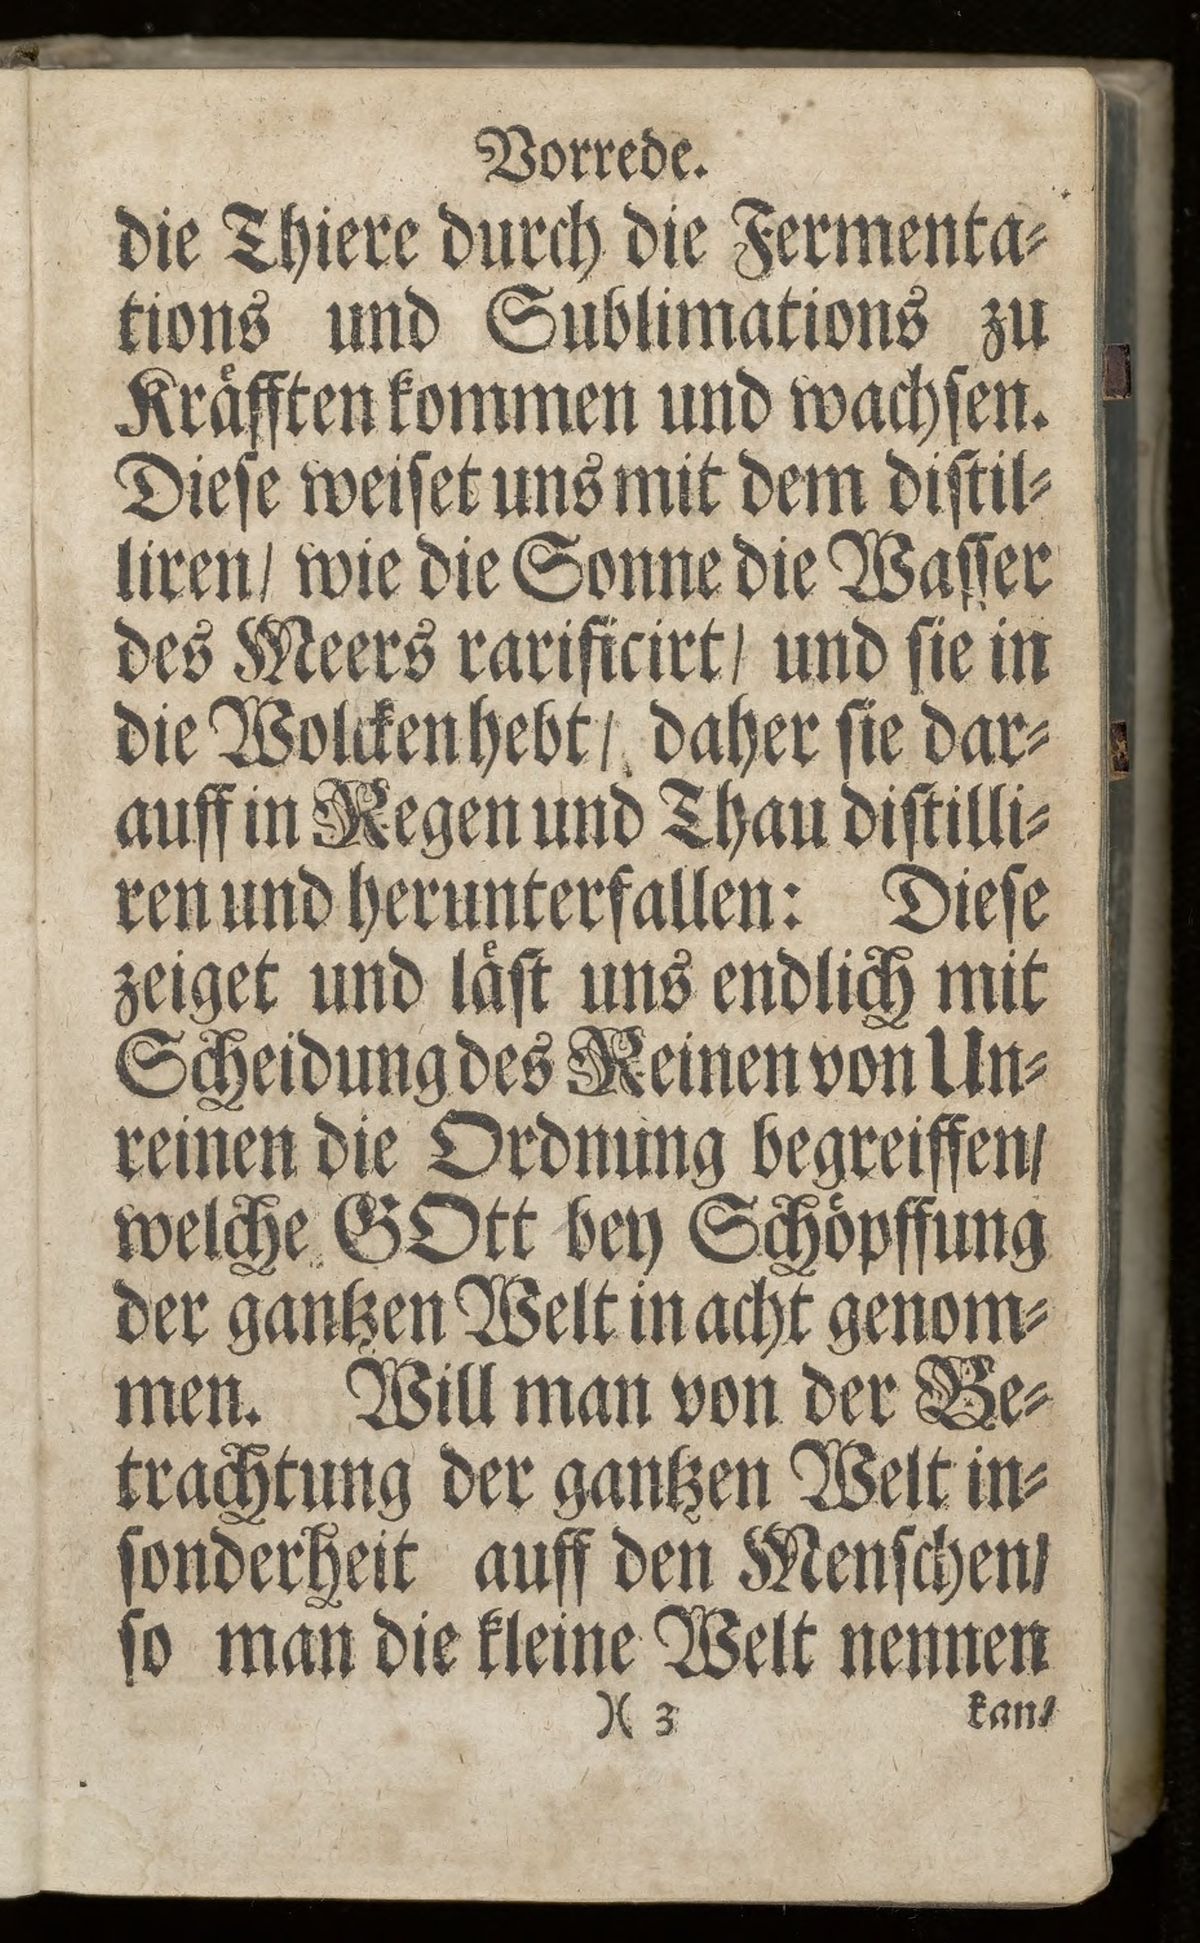 Vorrede.
die Thiere durch die Fermenta⸗
tions und Sublimations zu
Kräfften kommen und wachsen.
Diese weiset uns mit dem distil⸗
liren/ wie die Sonne die Wasser
des Meers rarificirt/ und sie in
die Wolcken hebt/ daher sie dar⸗
auff in Regen und Thau distilli⸗
ren und herunterfallen: Diese
zeiget und läst uns endlich mit
Scheidung des Reinen von Un⸗
reinen die Ordnung begreiffen/
welche GOtt bey Schöpffung
der gantzen Welt in acht genom⸗
men. Will man von der Be⸗
trachtung der gantzen Welt in⸗
sonderheit auff den Menschen/
so man die kleine Welt nennen
)( 3 kan/